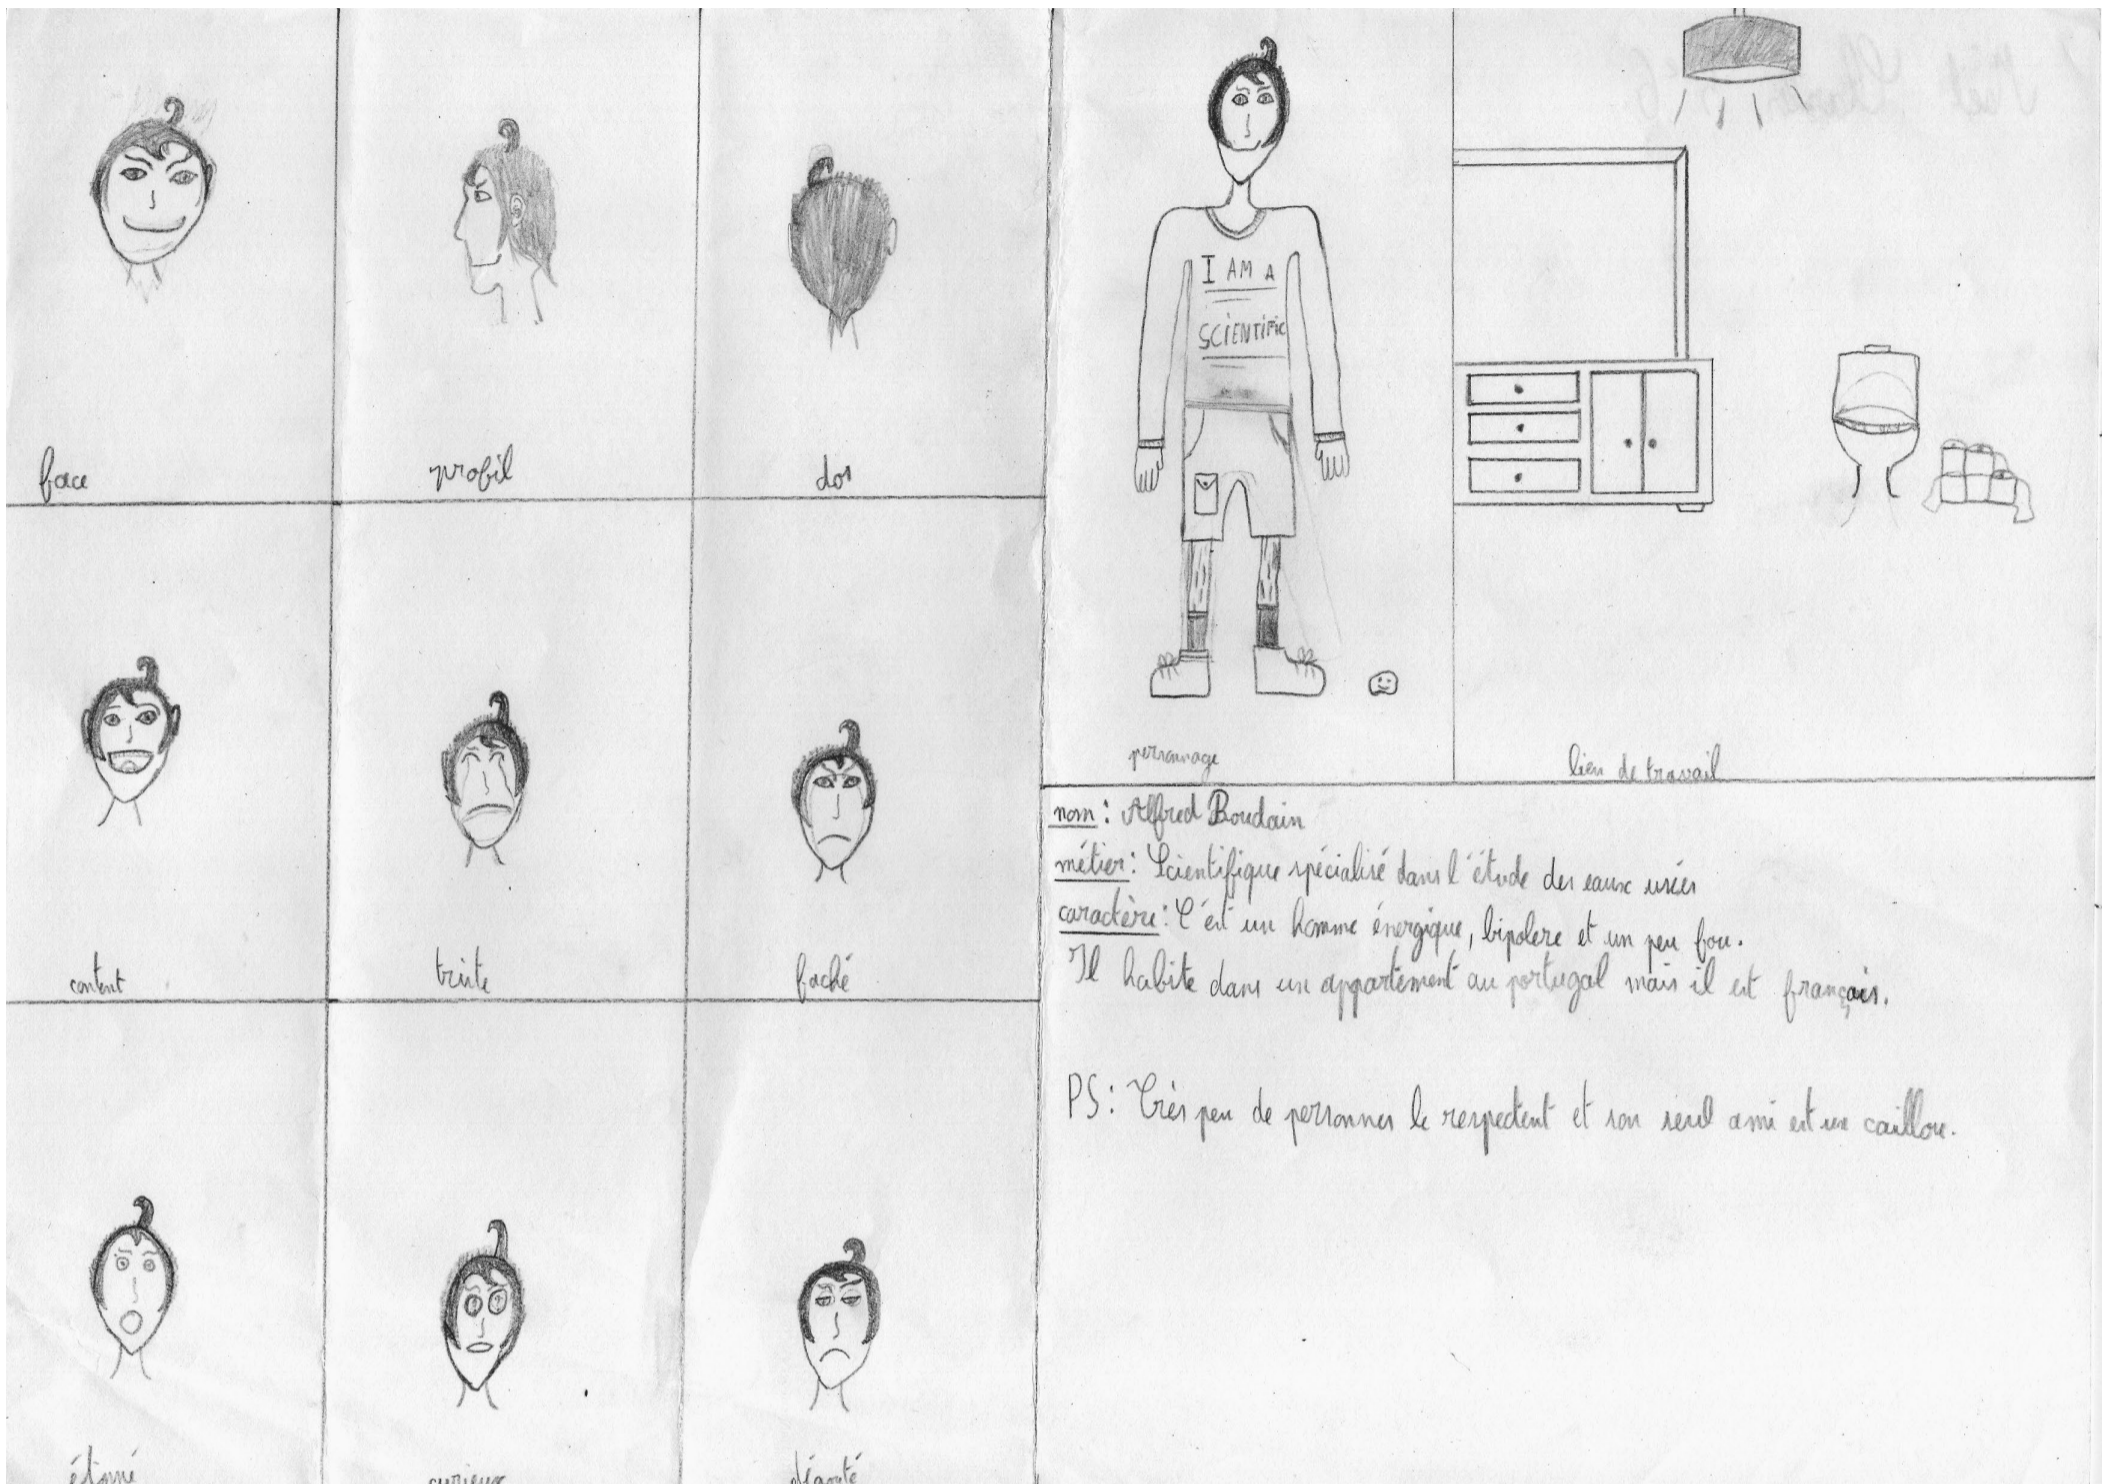 face
profil
dos
content
triste
faché
étonné
curieux
dégouté
I AM A
SCIENTIFIC
personnage
lieu de travail
nom: Alfred Boudain
métier: Scientifique spécialisé dans l'étude des eaux usées
caractère: C'est un homme énergique, bipolere et un peu fou.
Il habite dans un appartement au portugal mais il est français.
PS: Très peu de personnes le respectent et son seul ami est un caillou.